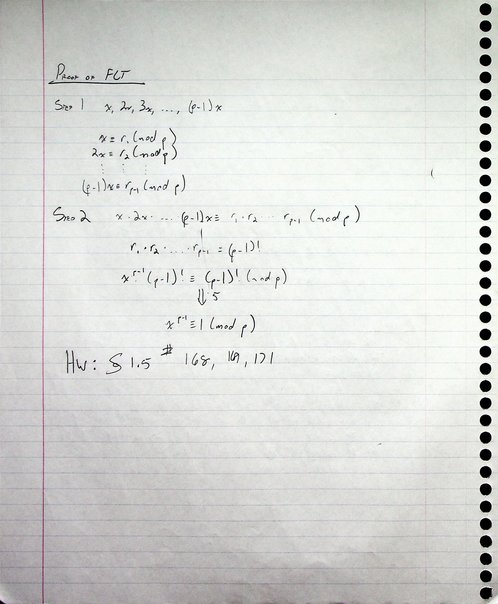 Proof of FLT
Step 1 x, 2x, 3x, ..., (p-1)x
x ≡ r₁ (mod p)
2x ≡ r₂ (mod p)
(p-1)x ≡ rₚ₋₁ (mod p)
Step 2 x · 2x · ... (p-1)x ≡ r₁ · r₂ ... rₚ₋₁ (mod p)
r₁ · r₂ · ... · rₚ₋₁ = (p-1)!
xᵖ⁻¹ (p-1)! ≡ (p-1)! (mod p)
⇓ 5
xᵖ⁻¹ ≡ 1 (mod p)
HW: § 1.5 # 168, 169, 171